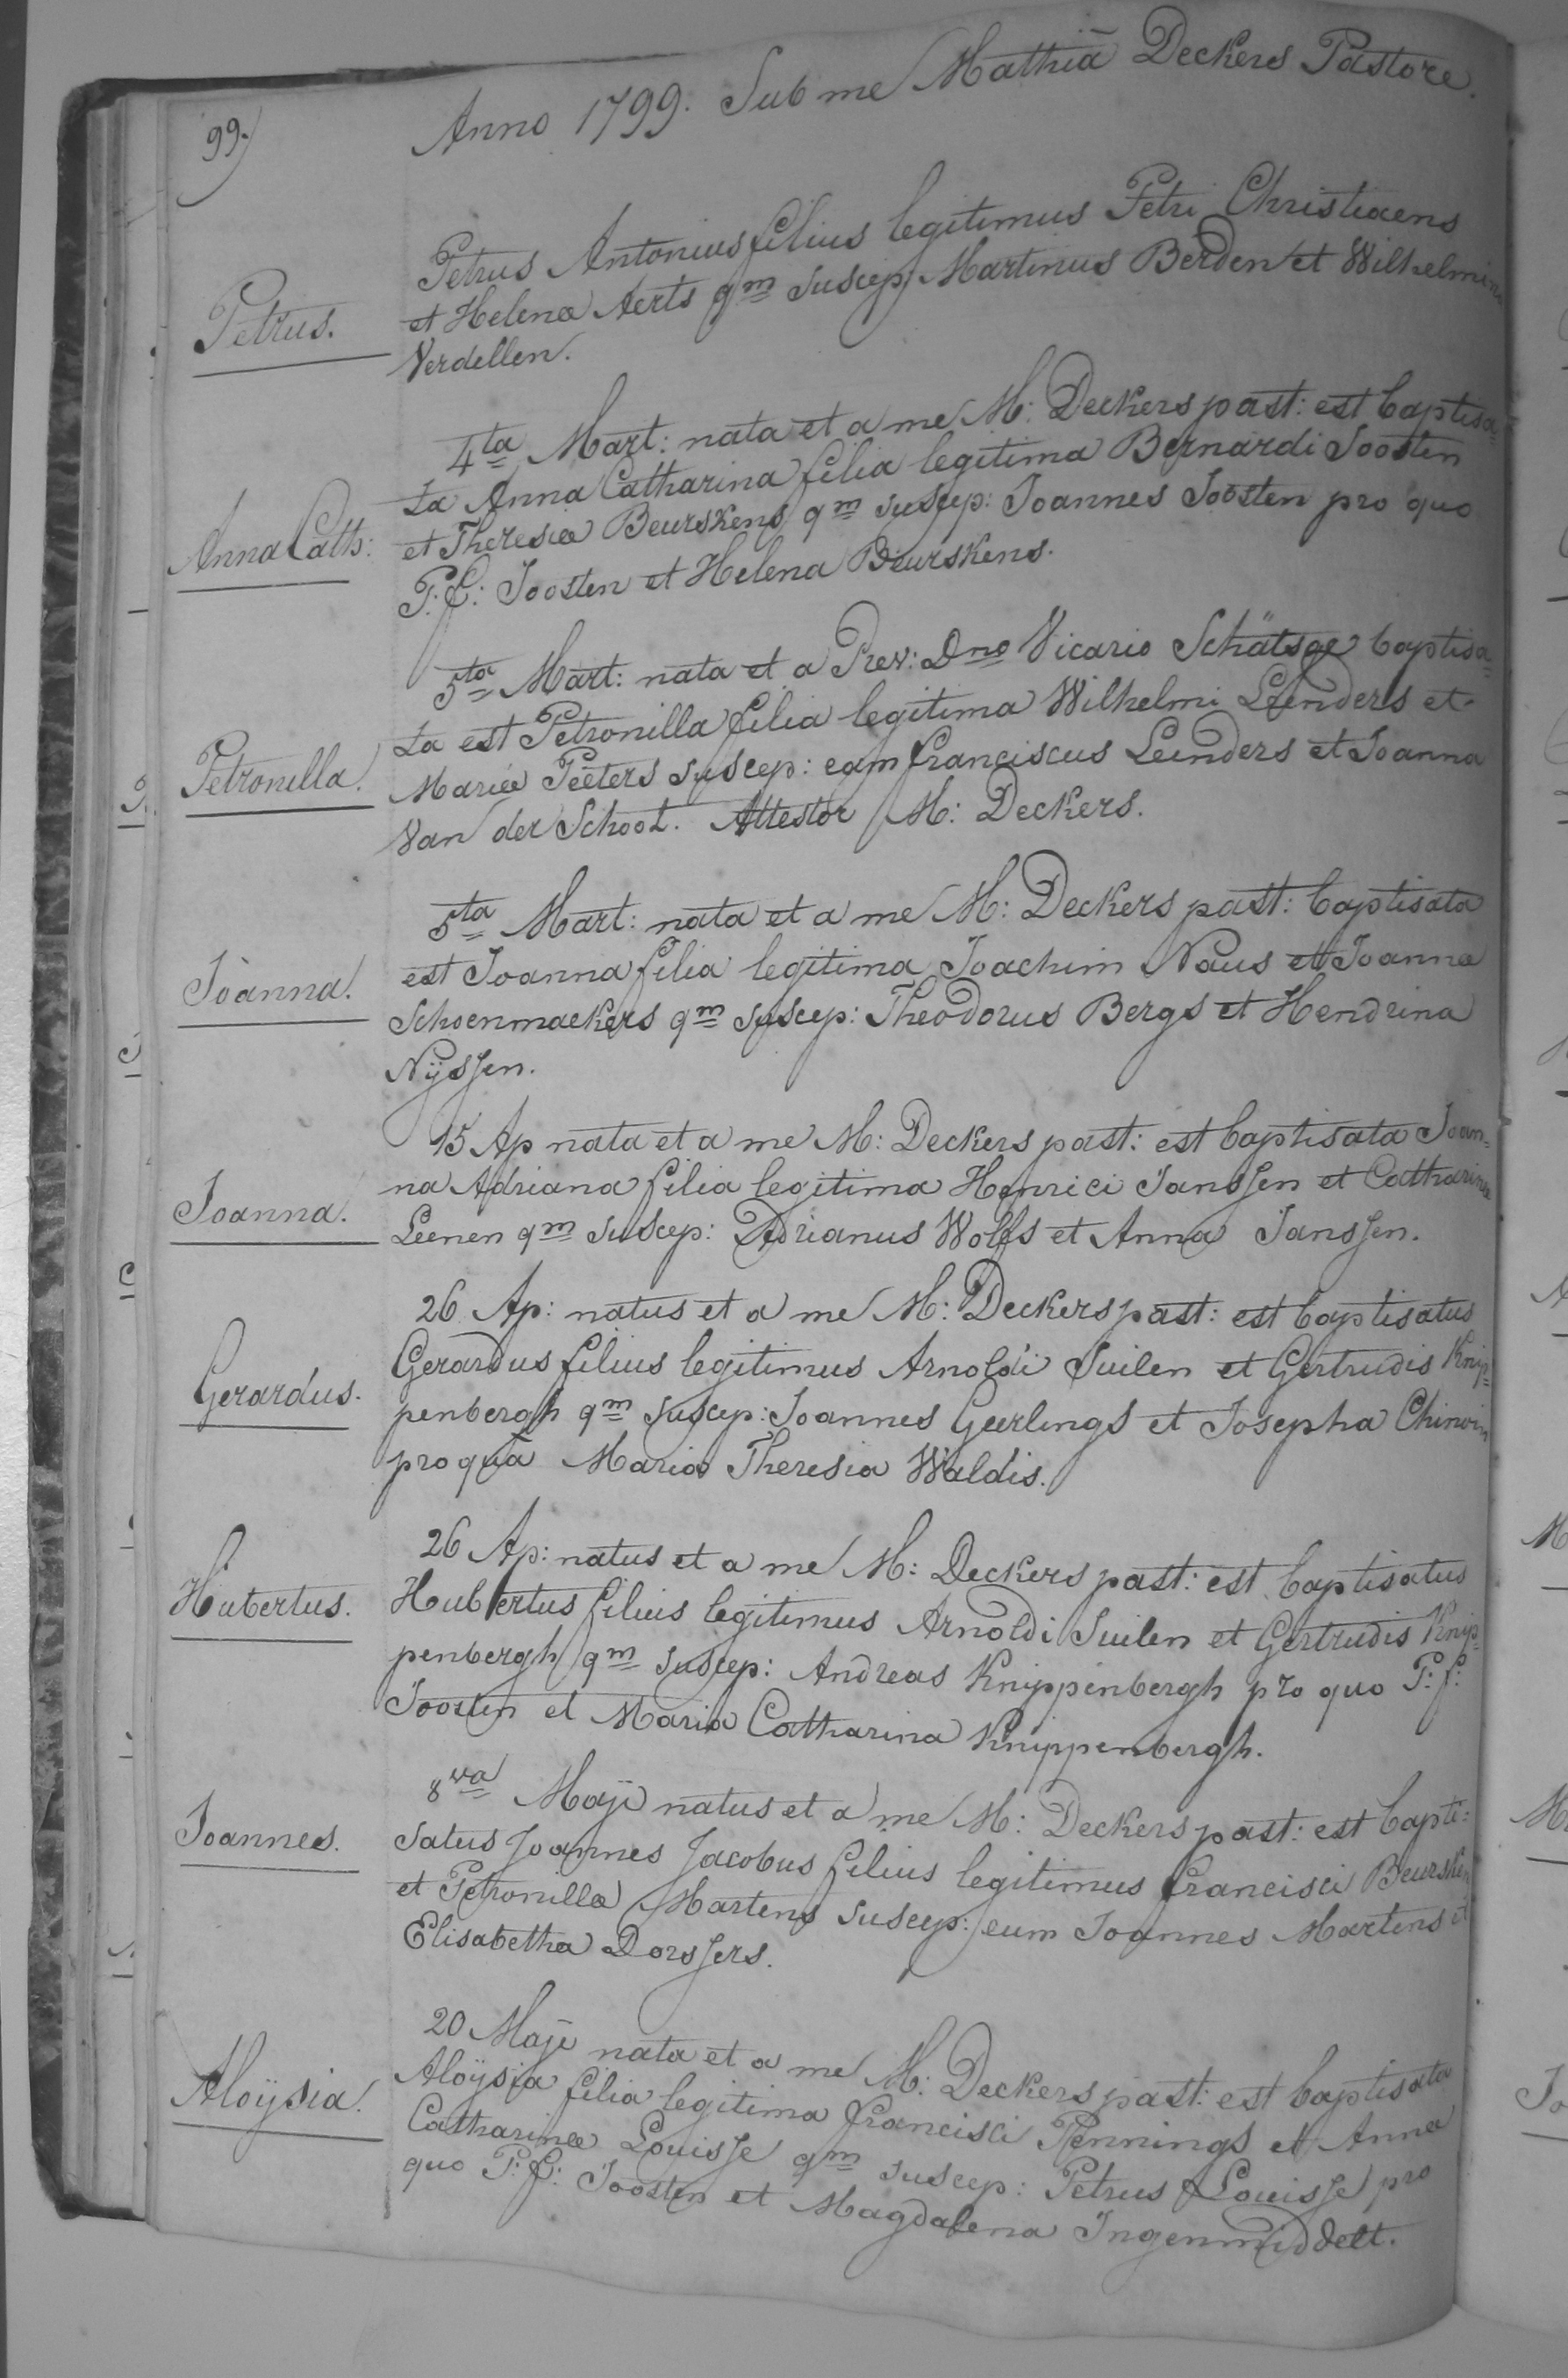 99.
Anno 1799. Sub me Mathiā Deckers Pastore.
Petrus.
Petrus Antonius filius legitimus Petri Christiaens
et Helenæ Aerts qm suscep Martinus Berden et Wilhelmina
Verdellen.
Anna Cath:
4ta Mart: nata et a me M: Deckers past: est baptisa=
ta Anna Catharina filia legitima Bernardi Joosten
et Theresiæ Beurskens qm suscep: Joannes Joosten pro quo
P: f: Joosten et Helena Beurskens.
Petronella.
5ta Mart: nata et a Rev: Dno Vicario Schätsge baptisa=
ta est Petronilla filia legitima Wilhelmi Leenders et
Mariæ Peeters suscep: eam franciscus Leenders et Joanna
Van der Schoot. Attestor M: Deckers.
Joanna.
5ta Mart: nata et a me M: Deckers past: baptisata
est Joanna filia legitima Joachim Naus et Joannæ
Schoenmaekers qm suscep: Theodorus Bergs et Hendrina
Nÿssen.
Joanna.
15 Ap nata et a me M: Deckers past: est baptisata Joan=
na Adriana filia legitima Henrici Janssen et Catharinæ
Leenen qm suscep: Adrianus Wolfs et Anna Janssen.
Gerardus.
26 Ap: natus et a me M: Deckers past: est baptisatus
Gerardus filius legitimus Arnoldi Suilen et Gertrudis Knip=
penbergh qm suscep: Joannes Geerlings et Josepha
pro quā Maria Theresia Waldis.
Hubertus.
26 Ap: natus et a me M: Deckers past: est baptisatus
Hubertus filius legitimus Arnoldi Suilen et Gertrudis Knip=
penbergh qm suscep: Andreas Knippenbergh pro quo P: f:
Joosten et Maria Catharina Knippenbergh.
Joannes.
8va Maji natus et a me M: Deckers past: est bapti=
satus Joannes Jacobus filius legitimus francisci Beurskens
et Petronillæ Martens suscep: eum Joannes Martens et
Elisabetha Dorssers.
Aloÿsia.
20 Maji nata et a me M: Deckers past: est baptisata
Aloÿsia filia legitima francisci Pennings et Annæ
Catharinæ Louisse qm suscep: Petrus Louisse pro
quo P: f: Joosten et Magdalena Ingenmiddelt.